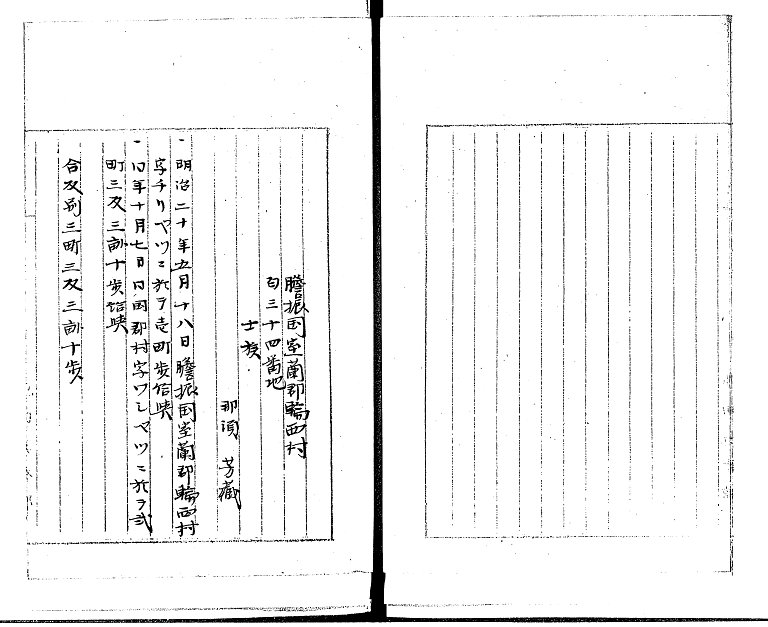 膽振国室蘭郡輪西村
百三十四番地
士族
那須 芳蔵
一 明治二十年五月十八日膽振国室蘭郡輪西村
字チリマツニ於ヲ壱町歩
一 同年十月七日同国郡村字ワシマツニ於ヲ弐
町三反三畝十歩
合反別三町三反三畝十歩